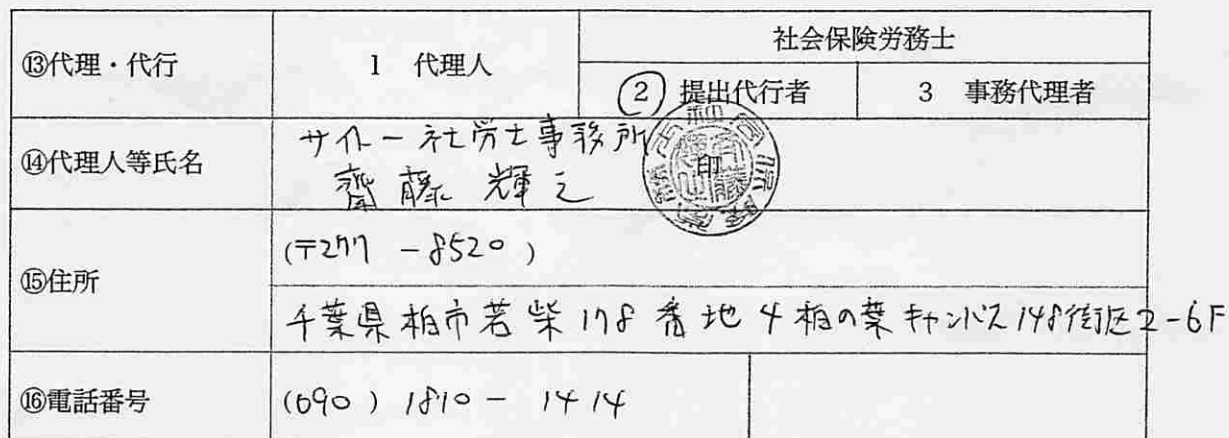 ⑬代理・代行
1 代理人
社会保険労務士
② 提出代行者
3 事務代理者
⑭代理人等氏名
サイトー社労士事務所
齋藤 輝之
印
⑮住所
(〒277 -8520 )
千葉県柏市若柴178番地4柏の葉キャンパス148街区2-6F
⑯電話番号
(090) 1810- 1414